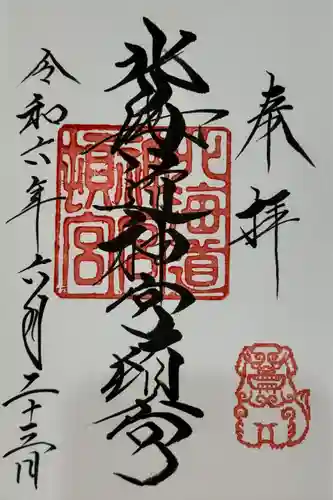 奉拝
北海道神宮頓宮
北海道
神宮
頓宮
令和六年六月二十三日